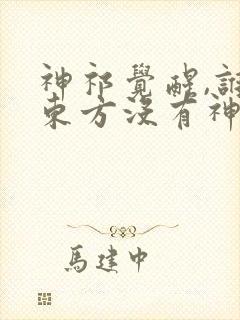 神祁覺醒,誰
東方沒有神
馬建中